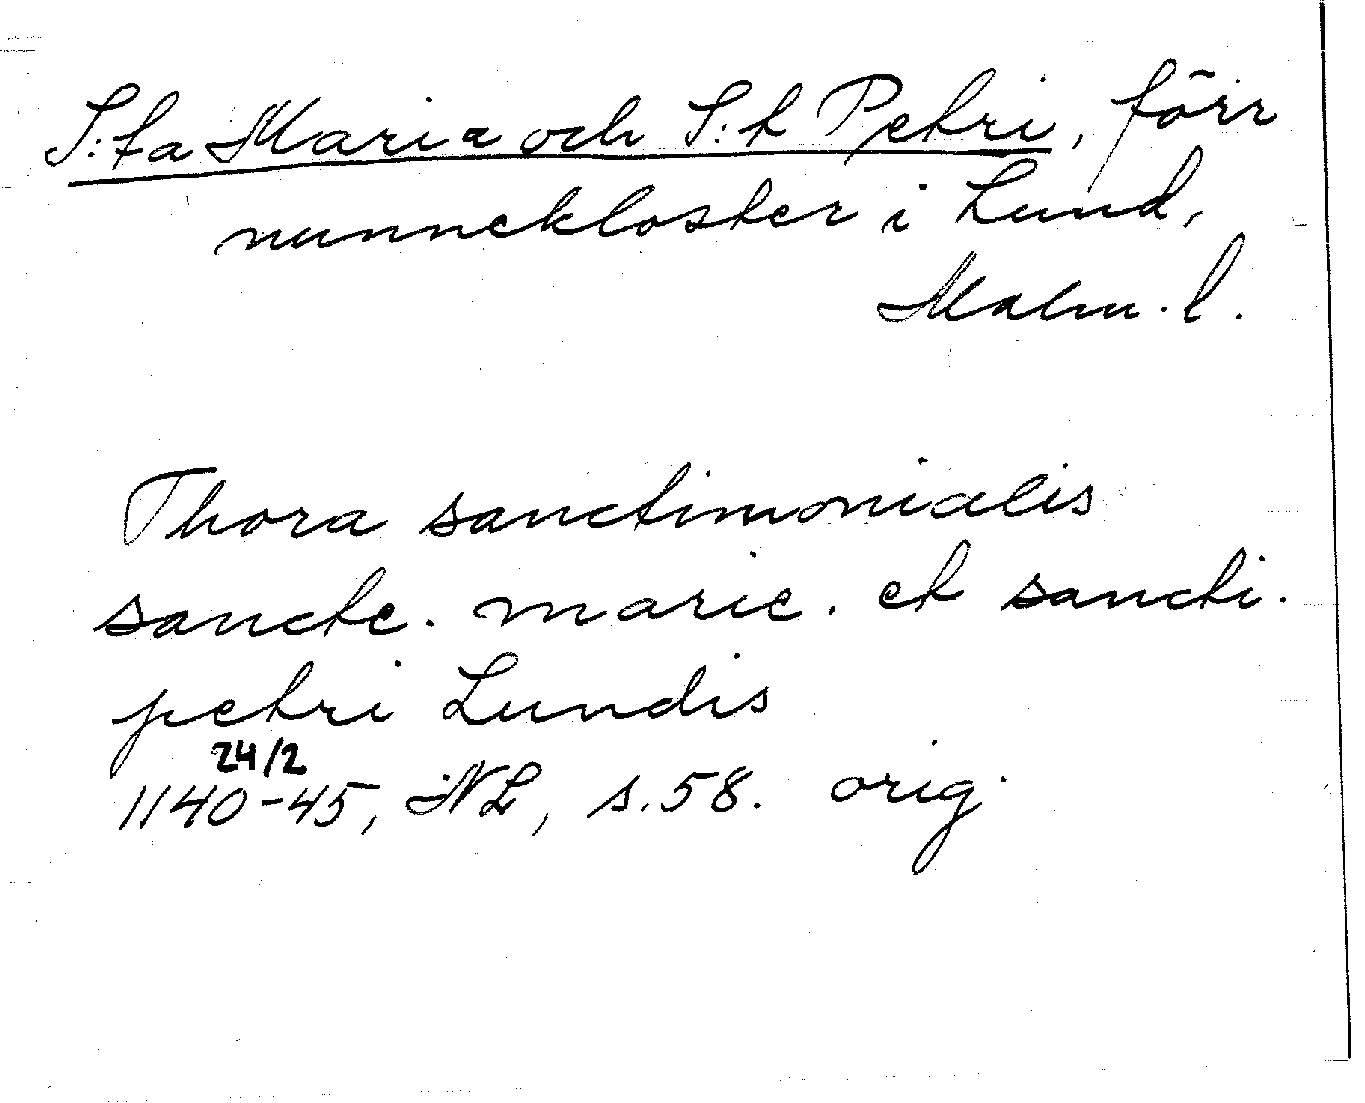 S:ta Maria och S:t Petri, förr
nunnekloster i Lund,
Malm. l.
Thora sanctimonialis
sancte. marie. et sancti.
petri Lundis
24/2
1140-45, NL, s. 58. orig.